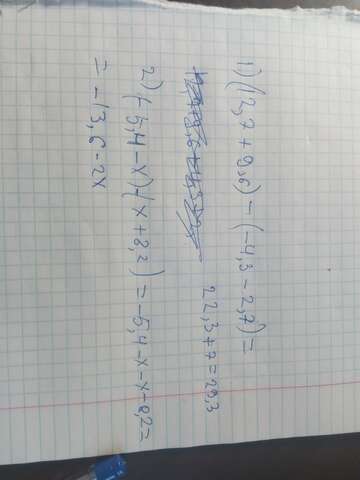 1) (12,7 + 9,6) - (-4,3 - 2,7) =
22,3 + 7 = 29,3
2) (-5,4 - x) - (x + 8,2) = -5,4 - x - x - 8,2 =
= -13,6 - 2x